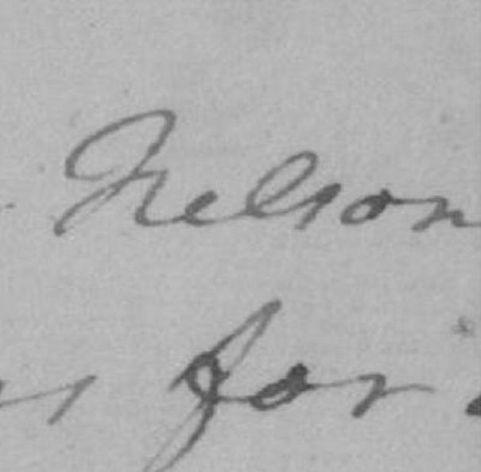 Nelson
for